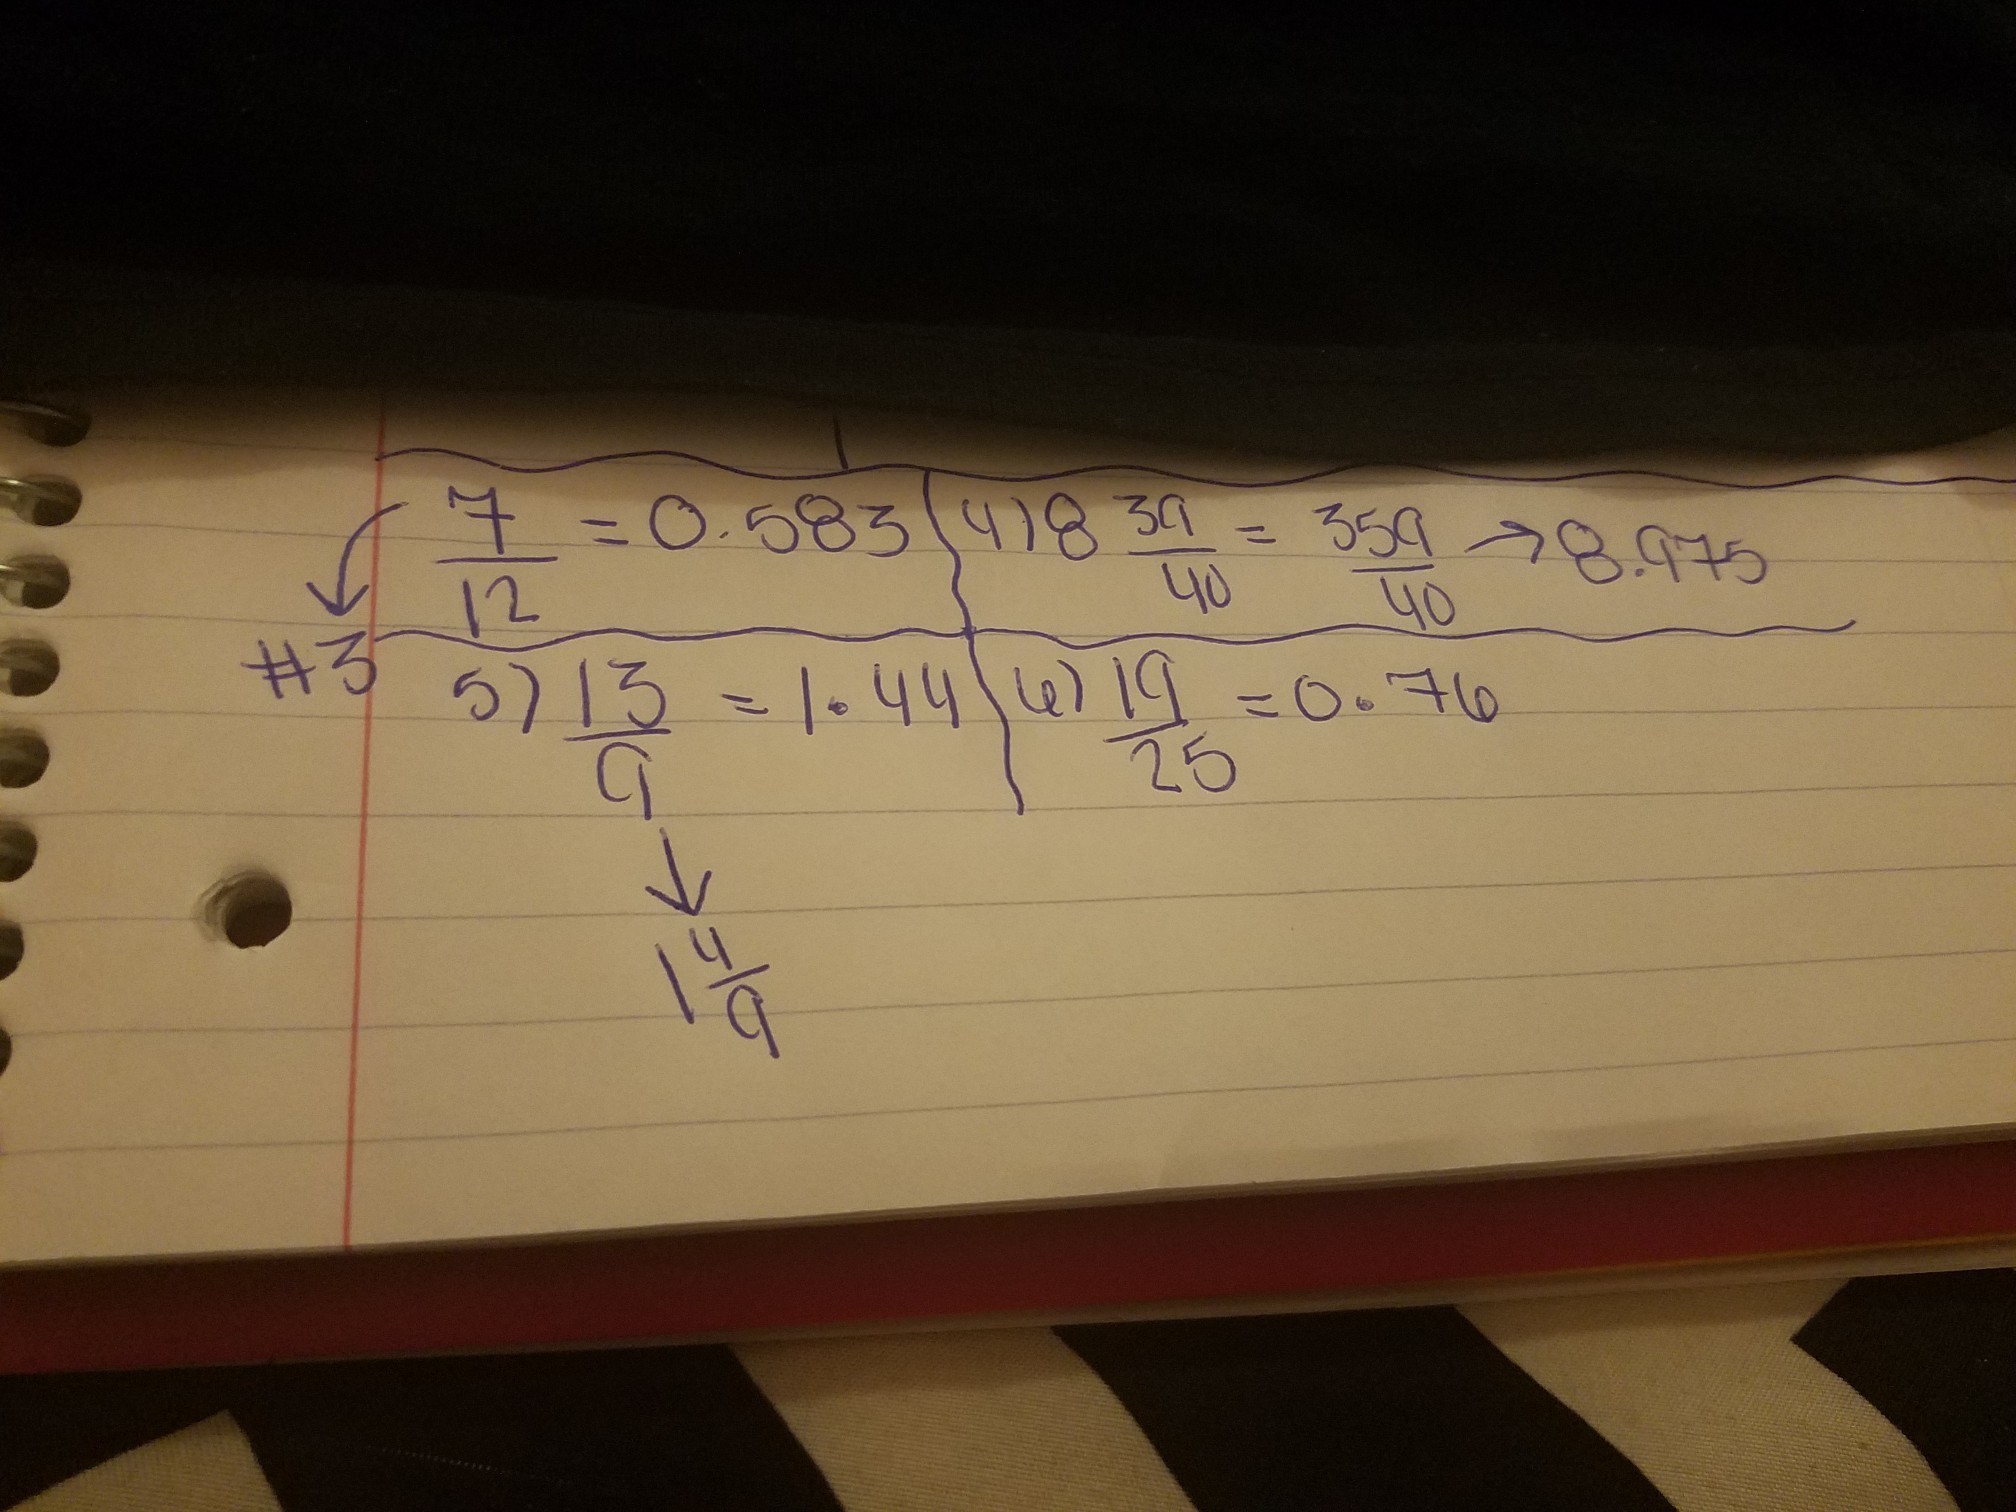 7/12 = 0.583
#3
4) 8 39/40 = 359/40 → 8.975
5) 13/9 = 1.44
1 4/9
6) 19/25 = 0.76